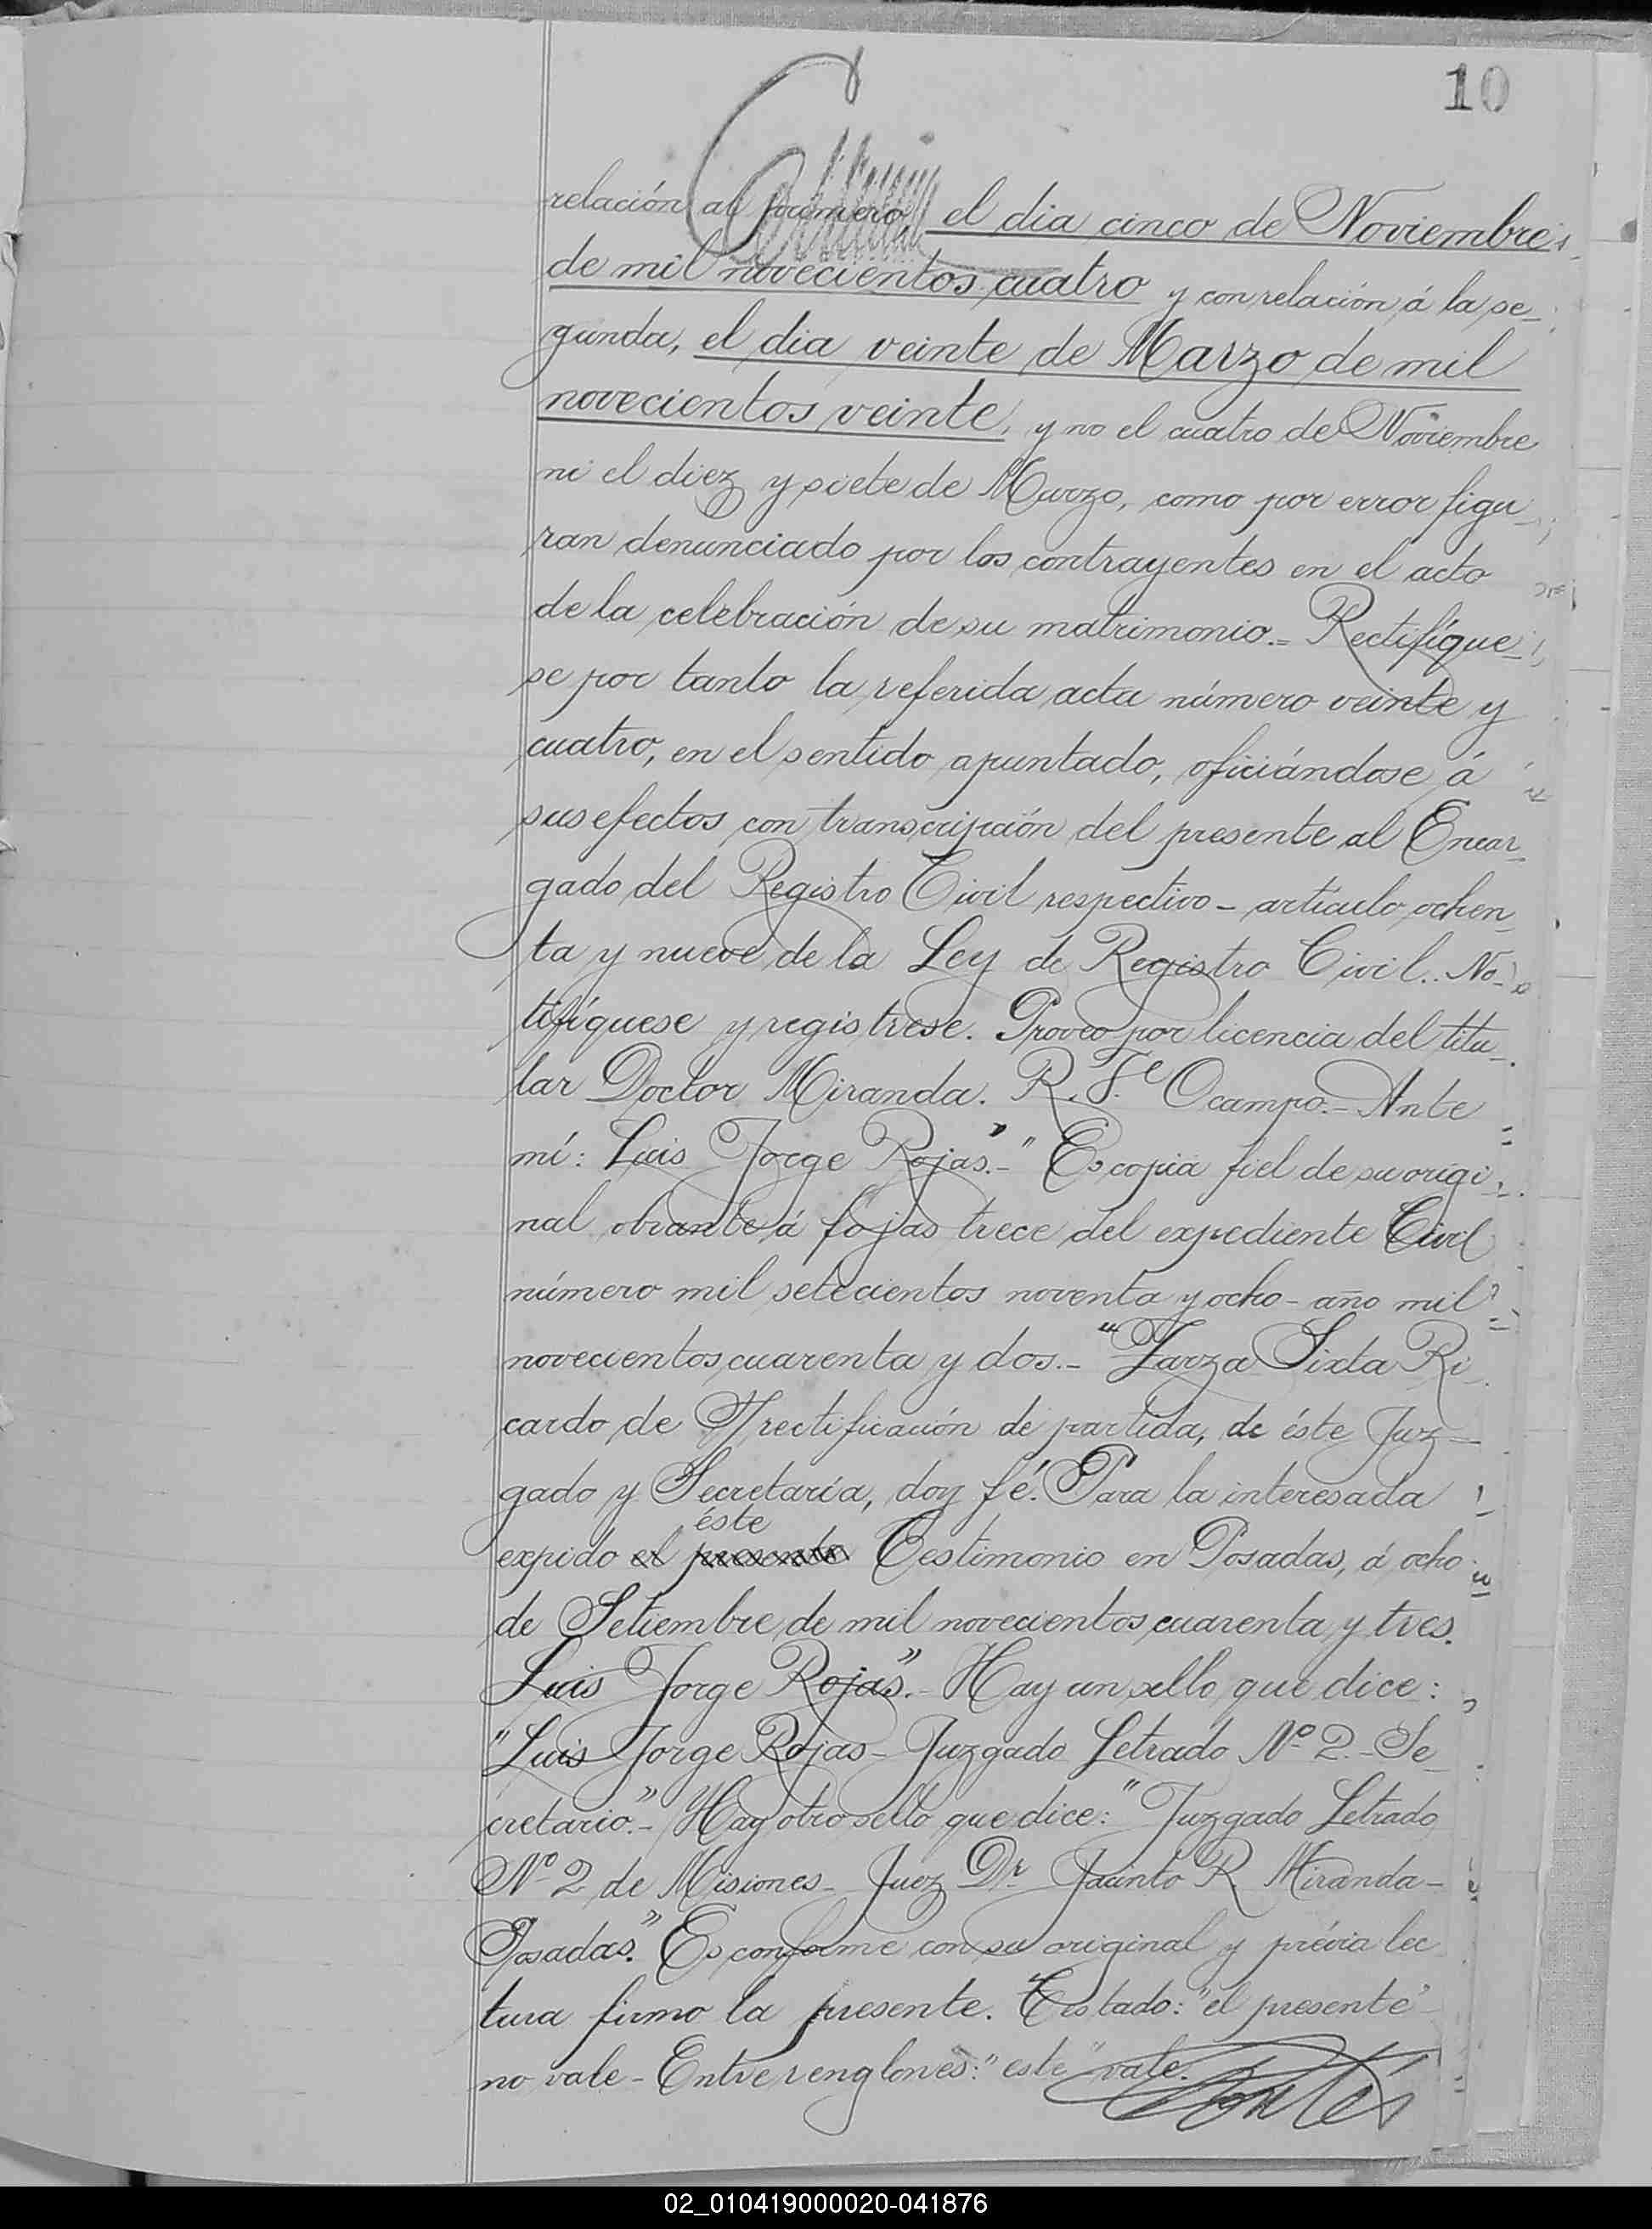 10
relación al primero, el dia cinco de Noviembre
de mil novecientos cuatro y con relación á la se-
gunda, el dia veinte de Marzo de mil
novecientos veinte, y no el cuatro de Noviembre
ni el diez y siete de Marzo, como por error figu-
ran denunciado por los contrayentes en el acto
de la celebración de su matrimonio.= Rectifíque-
se por tanto la referida acta número veinte y
cuatro, en el sentido apuntado, oficiándose á
sus efectos con transcripción del presente al Encar-
gado del Registro Civil respectivo - artículo ochen-
ta y nueve de la Ley de Registro Civil.. No-
tifíquese y registrese. Proveo por licencia del titu-
lar Doctor Miranda. R. Ocampo.- Ante
mí: Luis Jorge Rojas".- "Es copia fiel de su origi-
nal obrante á fojas trece del expediente Civil
número mil setecientos noventa y ocho - año mil
novecientos cuarenta y dos.- "Zarza Sixta Ri-
cardo de S/rectificación de partida, de éste Juz-
gado y Secretaría, doy fé. Para la interesada
éste
expido el presente Testimonio en Posadas, á ocho
de Setiembre de mil novecientos cuarenta y tres.
Luis Jorge Rojas".- Hay un sello que dice:
"Luis Jorge Rojas - Juzgado Letrado Nº 2.- Se-
cretario".- Hay otro sello que dice: "Juzgado Letrado
Nº 2 de Misiones - Juez Dr. Jacinto R. Miranda -
Posadas". Es conforme con su original y prévia lec
tura firmo la presente. Testado: "el presente"
no vale - Entre renglones: "este" vale.
02_010419000020-041876